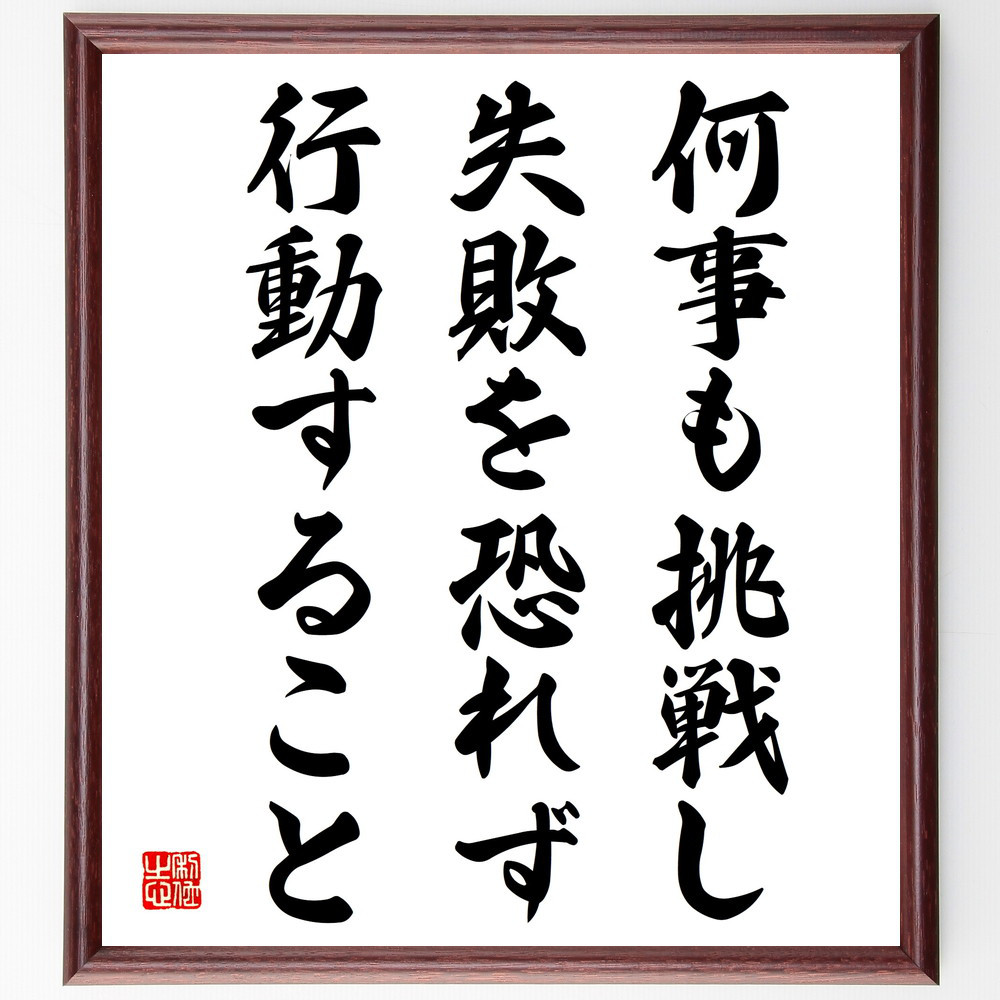 何事も挑戦し
失敗を恐れず
行動すること